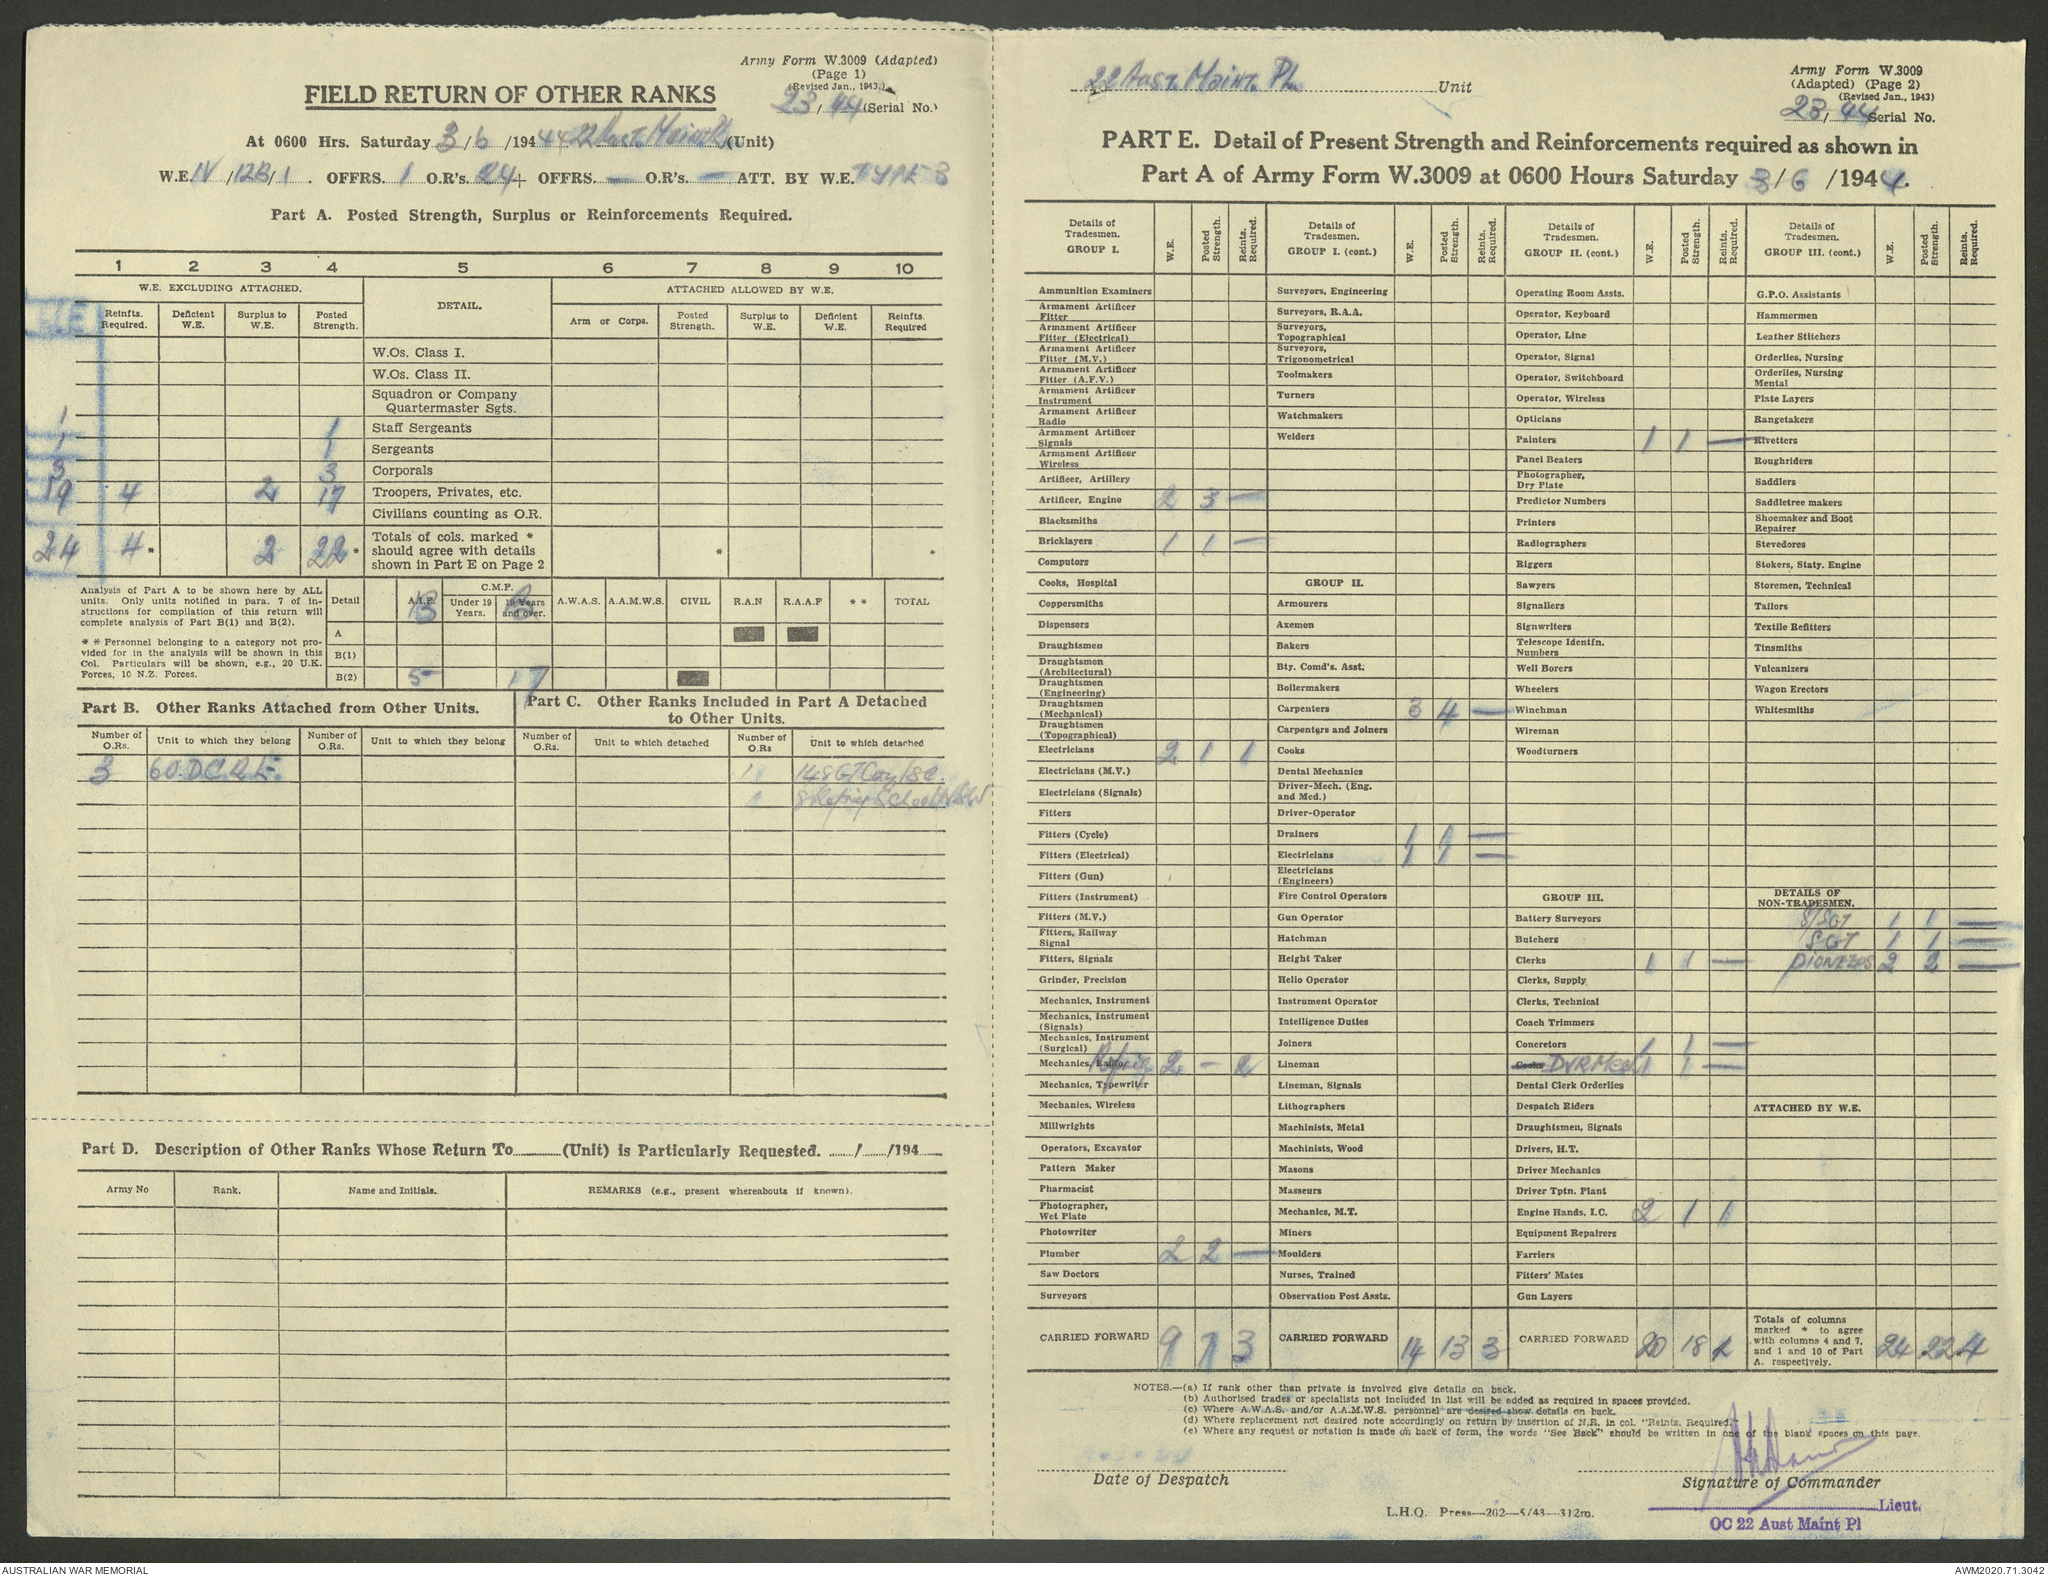 Army Form W.3009 (Adapted)
(Page 1)
(Revised Jan., 1943.)
23/44 (Serial No.)
FIELD RETURN OF OTHER RANKS
At 0600 Hrs. Saturday 3/6/1944 22 Aust. Maint. Pl. (Unit)
W.E. IV/12B/1. OFFRS. 1 O.R's. 24+ OFFRS. — O.R's. — ATT. BY W.E. TYPE B
Part A. Posted Strength, Surplus or Reinforcements Required.
1 2 3 4 5 6 7 8 9 10
W.E. EXCLUDING ATTACHED. DETAIL. ATTACHED ALLOWED BY W.E.
W.E. Reinfts. Required. Deficient W.E. Surplus to W.E. Posted Strength. Arm or Corps. Posted Strength. Surplus to W.E. Deficient W.E. Reinfts. Required
W.Os. Class I.
W.Os. Class II.
Squadron or Company Quartermaster Sgts.
1 1 Staff Sergeants
1 1 Sergeants
3 3 Corporals
19 4 2 17 Troopers, Privates, etc.
Civilians counting as O.R.
24 4 * 2 22 * Totals of cols. marked * should agree with details shown in Part E on Page 2 * *
Analysis of Part A to be shown here by ALL units. Only units notified in para. 7 of instructions for compilation of this return will complete analysis of Part B(1) and B(2).
* * Personnel belonging to a category not provided for in the analysis will be shown in this Col. Particulars will be shown, e.g., 20 U.K. Forces, 10 N.Z. Forces.
Detail A.I.F. C.M.F. Under 19 Years. 19 Years and over. A.W.A.S. A.A.M.W.S. CIVIL R.A.N R.A.A.F * * TOTAL
A
B(1)
B(2) 5 17
Part B. Other Ranks Attached from Other Units.
Part C. Other Ranks Included in Part A Detached to Other Units.
Number of O.Rs. Unit to which they belong Number of O.Rs. Unit to which they belong Number of O.Rs. Unit to which detached Number of O.Rs Unit to which detached
3 60 D.C.R.E. 1 148 GT Coy
1
Part D. Description of Other Ranks Whose Return To (Unit) is Particularly Requested. / /194
Army No Rank. Name and Initials. REMARKS (e.g., present whereabouts if known).
22 Aust. Maint. Pl. Unit
Army Form W.3009
(Adapted) (Page 2)
(Revised Jan., 1943)
23/44 Serial No.
PART E. Detail of Present Strength and Reinforcements required as shown in
Part A of Army Form W.3009 at 0600 Hours Saturday 3/6/1944.
Details of Tradesmen. GROUP I. W.E. Posted Strength. Reints. Required.
Ammunition Examiners
Armament Artificer Fitter
Armament Artificer Fitter (Electrical)
Armament Artificer Fitter (M.V.)
Armament Artificer Fitter (A.F.V.)
Armament Artificer Instrument
Armament Artificer Radio
Armament Artificer Signals
Armament Artificer Wireless
Artificer, Artillery
Artificer, Engine 2 3 —
Blacksmiths
Bricklayers 1 1 —
Computors
Cooks, Hospital
Coppersmiths
Dispensers
Draughtsmen
Draughtsmen (Architectural)
Draughtsmen (Engineering)
Draughtsmen (Mechanical)
Draughtsmen (Topographical)
Electricians 2 1 1
Electricians (M.V.)
Electricians (Signals)
Fitters
Fitters (Cycle)
Fitters (Electrical)
Fitters (Gun)
Fitters (Instrument)
Fitters (M.V.)
Fitters, Railway Signal
Fitters, Signals
Grinder, Precision
Mechanics, Instrument
Mechanics, Instrument (Signals)
Mechanics, Instrument (Surgical)
Mechanics, Radio Refrig 2 — 2
Mechanics, Typewriter
Mechanics, Wireless
Millwrights
Operators, Excavator
Pattern Maker
Pharmacist
Photographer, Wet Plate
Photowriter
Plumber 2 2 —
Saw Doctors
Surveyors
CARRIED FORWARD 9 7 3
Details of Tradesmen. GROUP I. (cont.) W.E. Posted Strength. Reints. Required.
Surveyors, Engineering
Surveyors, R.A.A.
Surveyors, Topographical
Surveyors, Trigonometrical
Toolmakers
Turners
Watchmakers
Welders
GROUP II.
Armourers
Axemen
Bakers
Bty. Comd's. Asst.
Boilermakers
Carpenters 3 4 —
Carpenters and Joiners
Cooks
Dental Mechanics
Driver-Mech. (Eng. and Med.)
Driver-Operator
Drainers 1 1 —
Electricians 1 1 —
Electricians (Engineers)
Fire Control Operators
Gun Operator
Hatchman
Height Taker
Helio Operator
Instrument Operator
Intelligence Duties
Joiners
Lineman
Lineman, Signals
Lithographers
Machinists, Metal
Machinists, Wood
Masons
Masseurs
Mechanics, M.T.
Miners
Moulders
Nurses, Trained
Observation Post Assts.
CARRIED FORWARD 14 13 3
Details of Tradesmen. GROUP II. (cont.) W.E. Posted Strength. Reints. Required.
Operating Room Assts.
Operator, Keyboard
Operator, Line
Operator, Signal
Operator, Switchboard
Operator, Wireless
Opticians
Painters 1 1 —
Panel Beaters
Photographer, Dry Plate
Predictor Numbers
Printers
Radiographers
Riggers
Sawyers
Signallers
Signwriters
Telescope Identfn. Numbers
Well Borers
Wheelers
Winchman
Wireman
Woodturners
GROUP III.
Battery Surveyors
Butchers
Clerks 1 1 —
Clerks, Supply
Clerks, Technical
Coach Trimmers
Concretors 1 1 —
Cooks DVR MECH 1 1 —
Dental Clerk Orderlies
Despatch Riders
Draughtsmen, Signals
Drivers, H.T.
Driver Mechanics
Driver Tptn. Plant
Engine Hands, I.C. 2 1 1
Equipment Repairers
Farriers
Fitters' Mates
Gun Layers
CARRIED FORWARD 20 18 4
Details of Tradesmen. GROUP III. (cont.) W.E. Posted Strength. Reints. Required.
G.P.O. Assistants
Hammermen
Leather Stitchers
Orderlies, Nursing
Orderlies, Nursing Mental
Plate Layers
Rangetakers
Rivetters
Roughriders
Saddlers
Saddletree makers
Shoemaker and Boot Repairer
Stevedores
Stokers, Staty. Engine
Storemen, Technical
Tailors
Textile Refitters
Tinsmiths
Vulcanizers
Wagon Erectors
Whitesmiths
DETAILS OF NON-TRADESMEN.
S/SGT 1 1 —
SGT 1 1 —
PIONEERS 2 2 —
ATTACHED BY W.E.
Totals of columns marked * to agree with columns 4 and 7, and 1 and 10 of Part A. respectively. 24 22 4
NOTES.—(a) If rank other than private is involved give details on back.
(b) Authorised trades or specialists not included in list will be added as required in spaces provided.
(c) Where A.W.A.S. and/or A.A.M.W.S. personnel are desired show details on back.
(d) Where replacement not desired note accordingly on return by insertion of N.R. in col. "Reints. Required."
(e) Where any request or notation is made on back of form, the words "See Back" should be written in one of the blank spaces on this page.
Date of Despatch
Signature of Commander
Lieut.
OC 22 Aust Maint Pl
L.H.Q. Press—202—5/43—312m.
AUSTRALIAN WAR MEMORIAL
AWM2020.71.3042